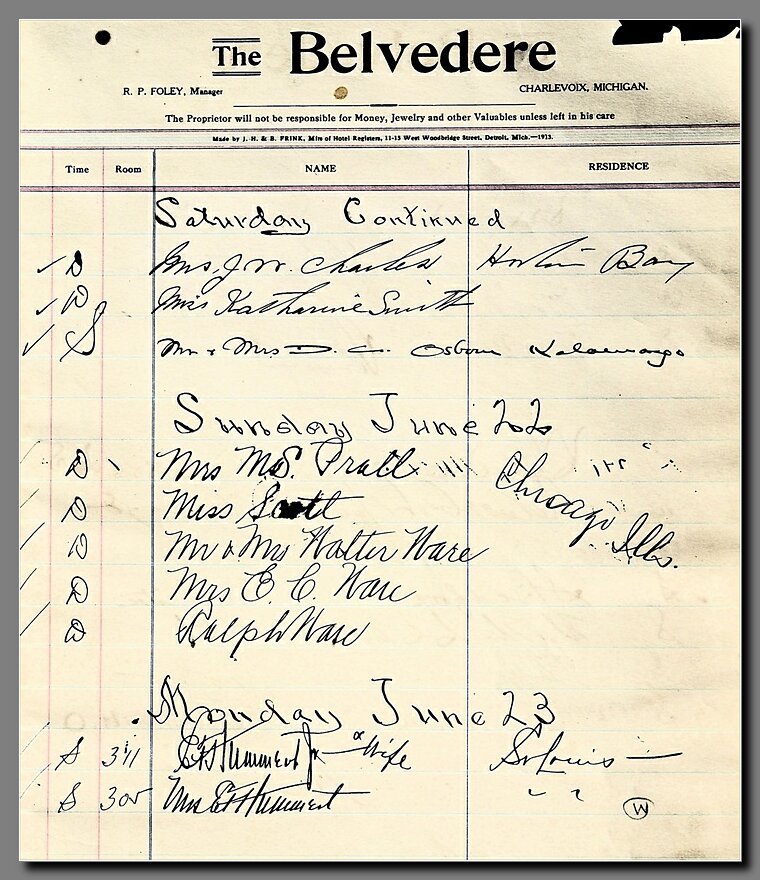 The Belvedere
R. P. FOLEY, Manager CHARLEVOIX, MICHIGAN.
The Proprietor will not be responsible for Money, Jewelry and other Valuables unless left in his care
Made by J. H. & B. FRINK, Mfrs of Hotel Registers, 11-15 West Woodbridge Street, Detroit, Mich.—1913.
Time Room NAME RESIDENCE
Saturday Continued
✓ D Mrs. J. W. Charles Horton Bay
✓ D Miss Katharine Smith
✓ S Mr & Mrs D. C. Osborn Kalamazoo
Sunday June 22
D Mrs M. S. Pratt Chicago Ills.
D Miss Scott
D Mr & Mrs Walter Ware
D Mrs E. C. Ware
D Ralph Ware
Monday June 23
S 311 Jr & Wife St Louis
S 305 Mrs " "
W